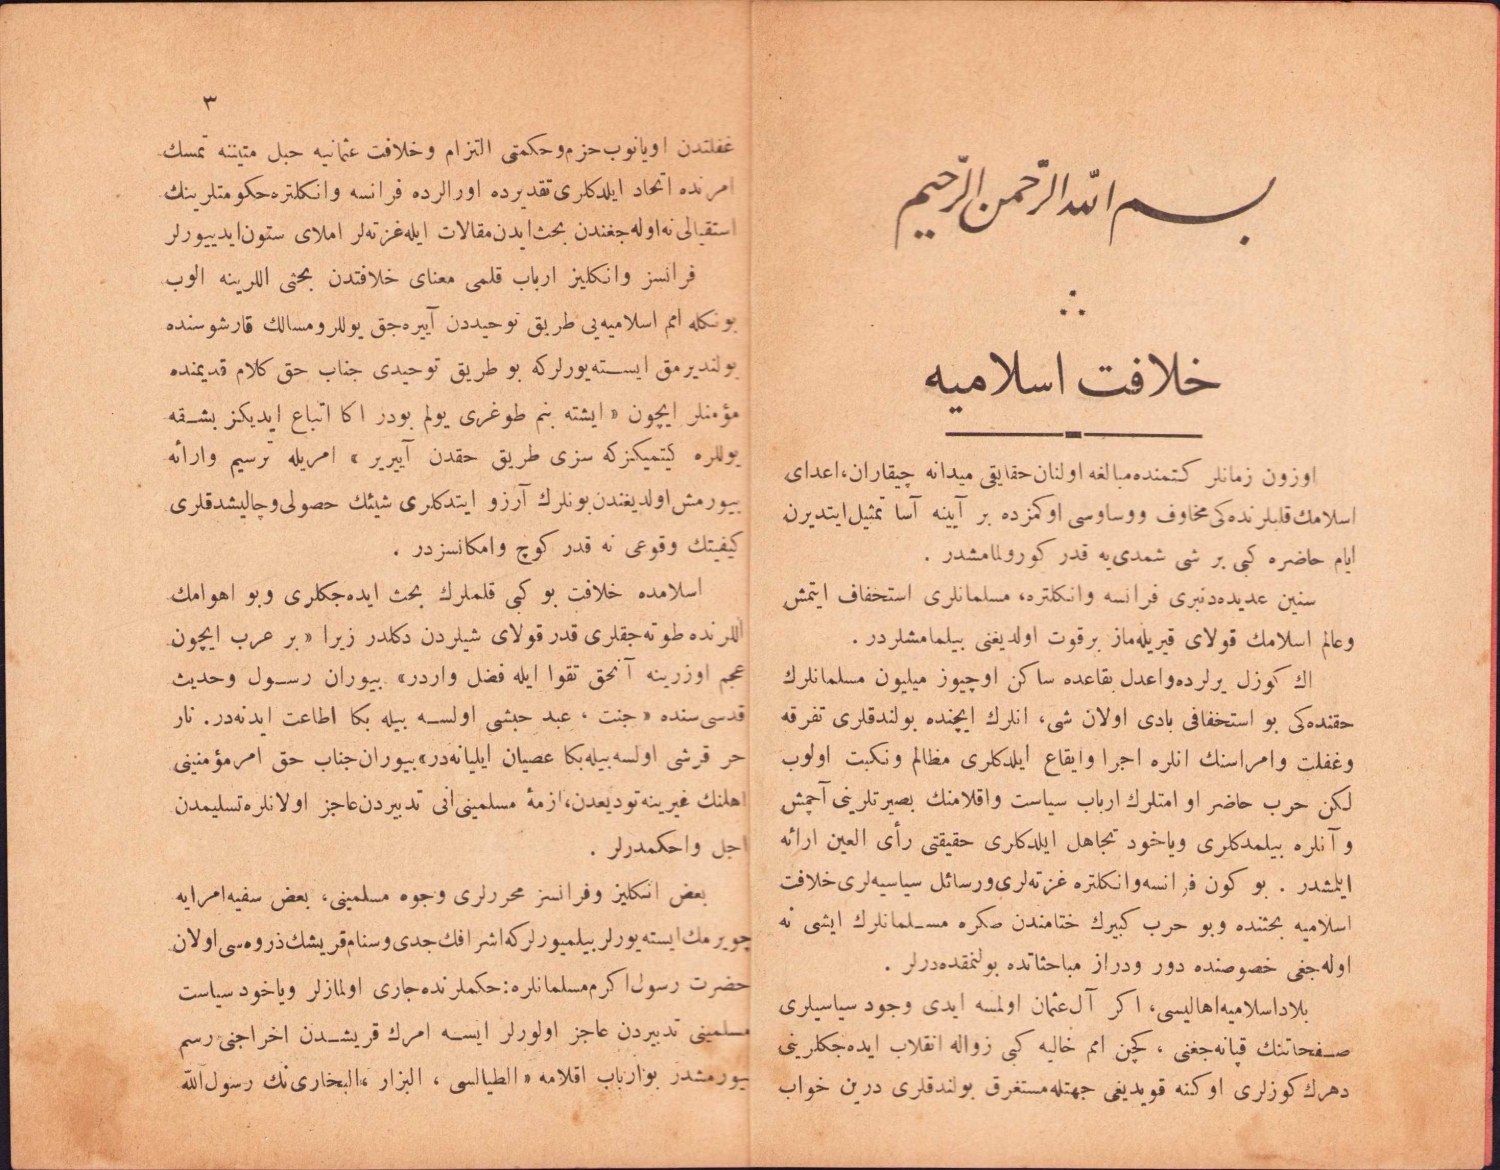 بسم الله الرحمن الرحيم
خلافت اسلاميه
اوزون زمانلر كتمنده مبالغه اولنان حقايقى ميدانه چيقاران، اعداى
اسلامك قلبلرنده كى مخاوف ووساوسى اوكمزده بر آيينه آسا تمثيل ايتديرن
ايام حاضره كبى بر شى شمدى يه قدر كورولمامشدر .
سنين عديده دنبرى فرانسه وانكلتره، مسلمانلرى استخفاف ايتمش
وعالم اسلامك قولاى قيريله ماز برقوت اولديغنى بيلمامشلردر .
اك كوزل يرلرده واعدل بقاعده ساكن اوچيوز ميليون مسلمانلرك
حقنده كى بو استخفافى بادى اولان شى، انلرك ايچنده بولندقلرى تفرقه
وغفلت وامراسنك انلره اجرا وايقاع ايلدكلرى مظالم ونكبت اولوب
لكن حرب حاضر او امتلرك ارباب سياست واقلامنك بصيرتلرينى آچمش
و آنلره بيلمدكلرى وياخود تجاهل ايلدكلرى حقيقتى رأى العين ارائه
ايلمشدر . بو كون فرانسه وانكلتره غزته لرى ورسائل سياسيه لرى خلافت
اسلاميه بحثنده وبو حرب كبيرك ختامندن صكره مسلمانلرك ايشى نه
اوله جغى خصوصنده دور ودراز مباحثاتده بولنمقده درلر .
بلاد اسلاميه اهاليسى، اكر آل عثمان اولمسه ايدى وجود سياسيلرى
صفحاتنك قپانه جغنى ، كچن امم خاليه كبى زواله انقلاب ايده جكلرينى
دهرك كوزلرى اوكنه قويديغى جهتله مستغرق بولندقلرى درين خواب
٣
غفلتدن اويانوب حزم وحكمتى التزام وخلافت عثمانيه حبل متيننه تمسك
امرنده اتحاد ايلدكلرى تقديرده اورالرده فرانسه وانكلتره حكومتلرينك
استقبالى نه اوله جغندن بحث ايدن مقالات ايله غزته لر املاى ستون ايدييورلر
فرانسز وانكليز ارباب قلمى معناى خلافتدن بحثى اللرينه الوب
بونكله امم اسلاميه يى طريق توحيددن آييره جق يوللر ومسالك قارشوسنده
بولنديرمق ايسته يورلركه بو طريق توحيدى جناب حق كلام قديمنده
مؤمنلر ايچون « ايشته بنم طوغرى يولم بودر اكا اتباع ايديكز بشقه
يوللره كيتميكزكه سزى طريق حقدن آييرير » امريله ترسيم وارائه
بيورمش اولديغندن بونلرك آرزو ايتدكلرى شيئك حصولى وچاليشدقلرى
كيفيتك وقوعى نه قدر كوچ وامكانسزدر .
اسلامده خلافت بو كبى قلملرك بحث ايده جكلرى وبو اهوامك
اللرنده طوته جقلرى قدر قولاى شيلردن دكلدر زيرا « بر عرب ايچون
عجم اوزرينه آنجق تقوا ايله فضل واردر» بيوران رسول وحديث
قدسى سنده « جنت ، عبد حبشى اولسه بيله بكا اطاعت ايدنه در. نار
حر قرشى اولسه بيله بكا عصيان ايليانه در» بيوران جناب حق امر مؤمنينى
اهلنك غيرينه توديعدن، ازمهٔ مسلمينى انى تدبيردن عاجز اولانلره تسليمدن
اجل واحكمدرلر .
بعض انكليز وفرانسز محررلرى وجوه مسلمينى، بعض سفيه امرايه
چويرمك ايسته يورلر بيلميورلركه اشرافك جدى وسنام قريشك ذروه سى اولان
حضرت رسول اكرم مسلمانلره: حكملرنده جارى اولمازلر وياخود سياست
مسلمينى تدبيردن عاجز اولورلر ايسه امرك قريشدن اخراجنى رسم
بيورمشدر بو ارباب اقلامه « الطيالسى ، البزار ، البخارى نك رسول الله